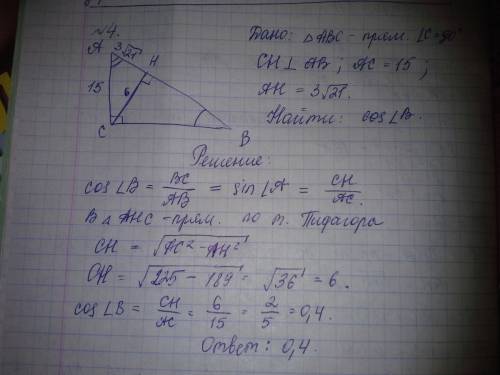 №4.
Дано: △ABC - прям. ∠C=90°
CH ⊥ AB; AC = 15;
AH = 3√21.
Найти: cos∠B.
A 3√21 H
15 6
C B
Решение:
cos∠B = BC/AB = sin∠A = CH/AC.
В △AHC - прям. по т. Пифагора
CH = √AC² - AH²
CH = √225 - 189 = √36 = 6.
cos∠B = CH/AC = 6/15 = 2/5 = 0,4.
Ответ: 0,4.